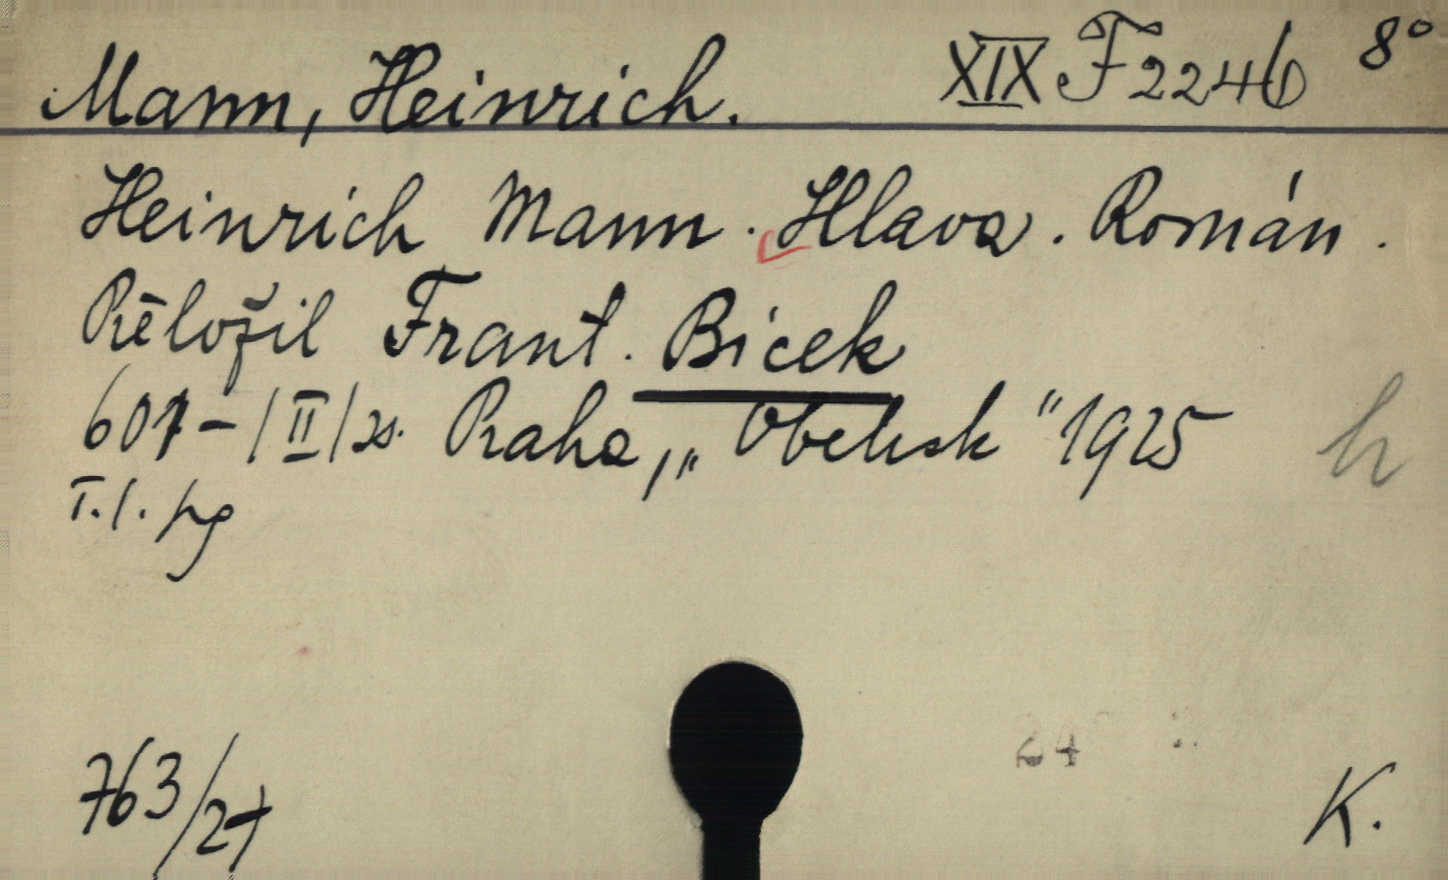 Mann, Heinrich. XIX F 2246 8°
Heinrich Mann. Hlava. Román.
Přěložil Frant. Bicek
601-/II/2s. Praha, „Obelisk" 1925
T. l. pg
h
763/27
24
K.